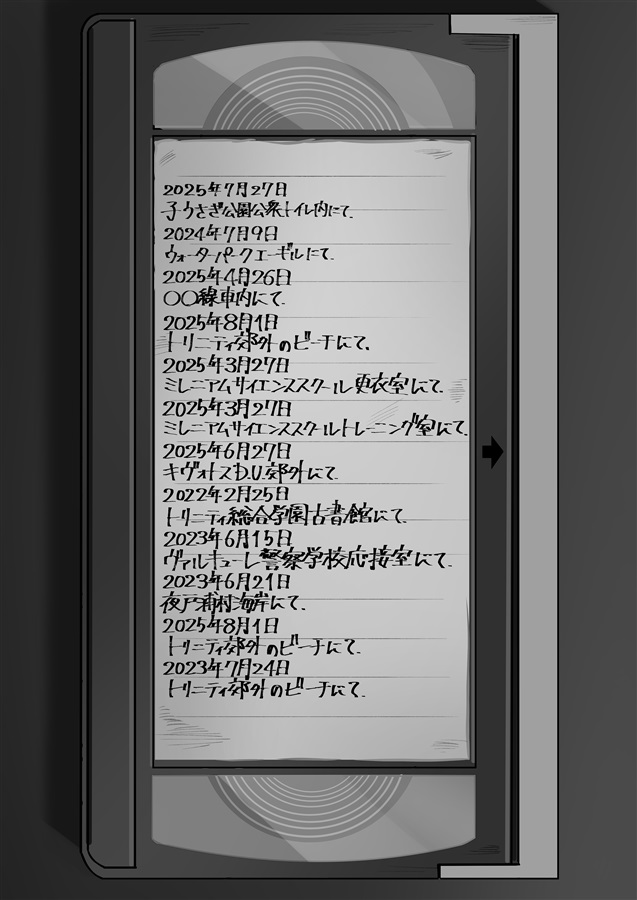 2025年7月27日
子うさぎ公園公衆トイレ内にて.
2024年7月9日
ウォーターパークエーギルにて.
2025年4月26日
〇〇線車内にて.
2025年8月1日
トリニティ郊外のビーチにて.
2025年3月27日
ミレニアムサイエンススクール更衣室にて.
2025年3月27日
ミレニアムサイエンススクールトレーニング室にて.
2025年6月27日
キヴォトスD.U.郊外にて.
2022年2月25日
トリニティ総合学園古書館にて.
2023年6月15日
ヴァルキューレ警察学校応接室にて.
2023年6月21日
夜戸浦村海岸にて.
2025年8月1日
トリニティ郊外のビーチにて.
2023年7月24日
トリニティ郊外のビーチにて.